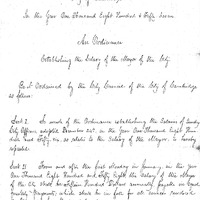 In the Year One Thousand Eight Hundred & Fifty Seven
An Ordinance
Establishing the Salary of the Mayor of the City.
Be it Ordained by the City Council of the City of Cambridge
as follows:
Sect 1. So much of the Ordinance establishing the Salaries of Sundry
City Officers, adopted December 24th, in the year One Thousand Eight Hun-
dred and Fifty six, as relates to the Salary of the Mayor, is hereby
repealed.
Sect 2. From and after the first Monday in January, in the year
One Thousand Eight Hundred and Fifty Eight, the salary of the Mayor
of the City shall be Fifteen Hundred Dollars annually, payable in equal